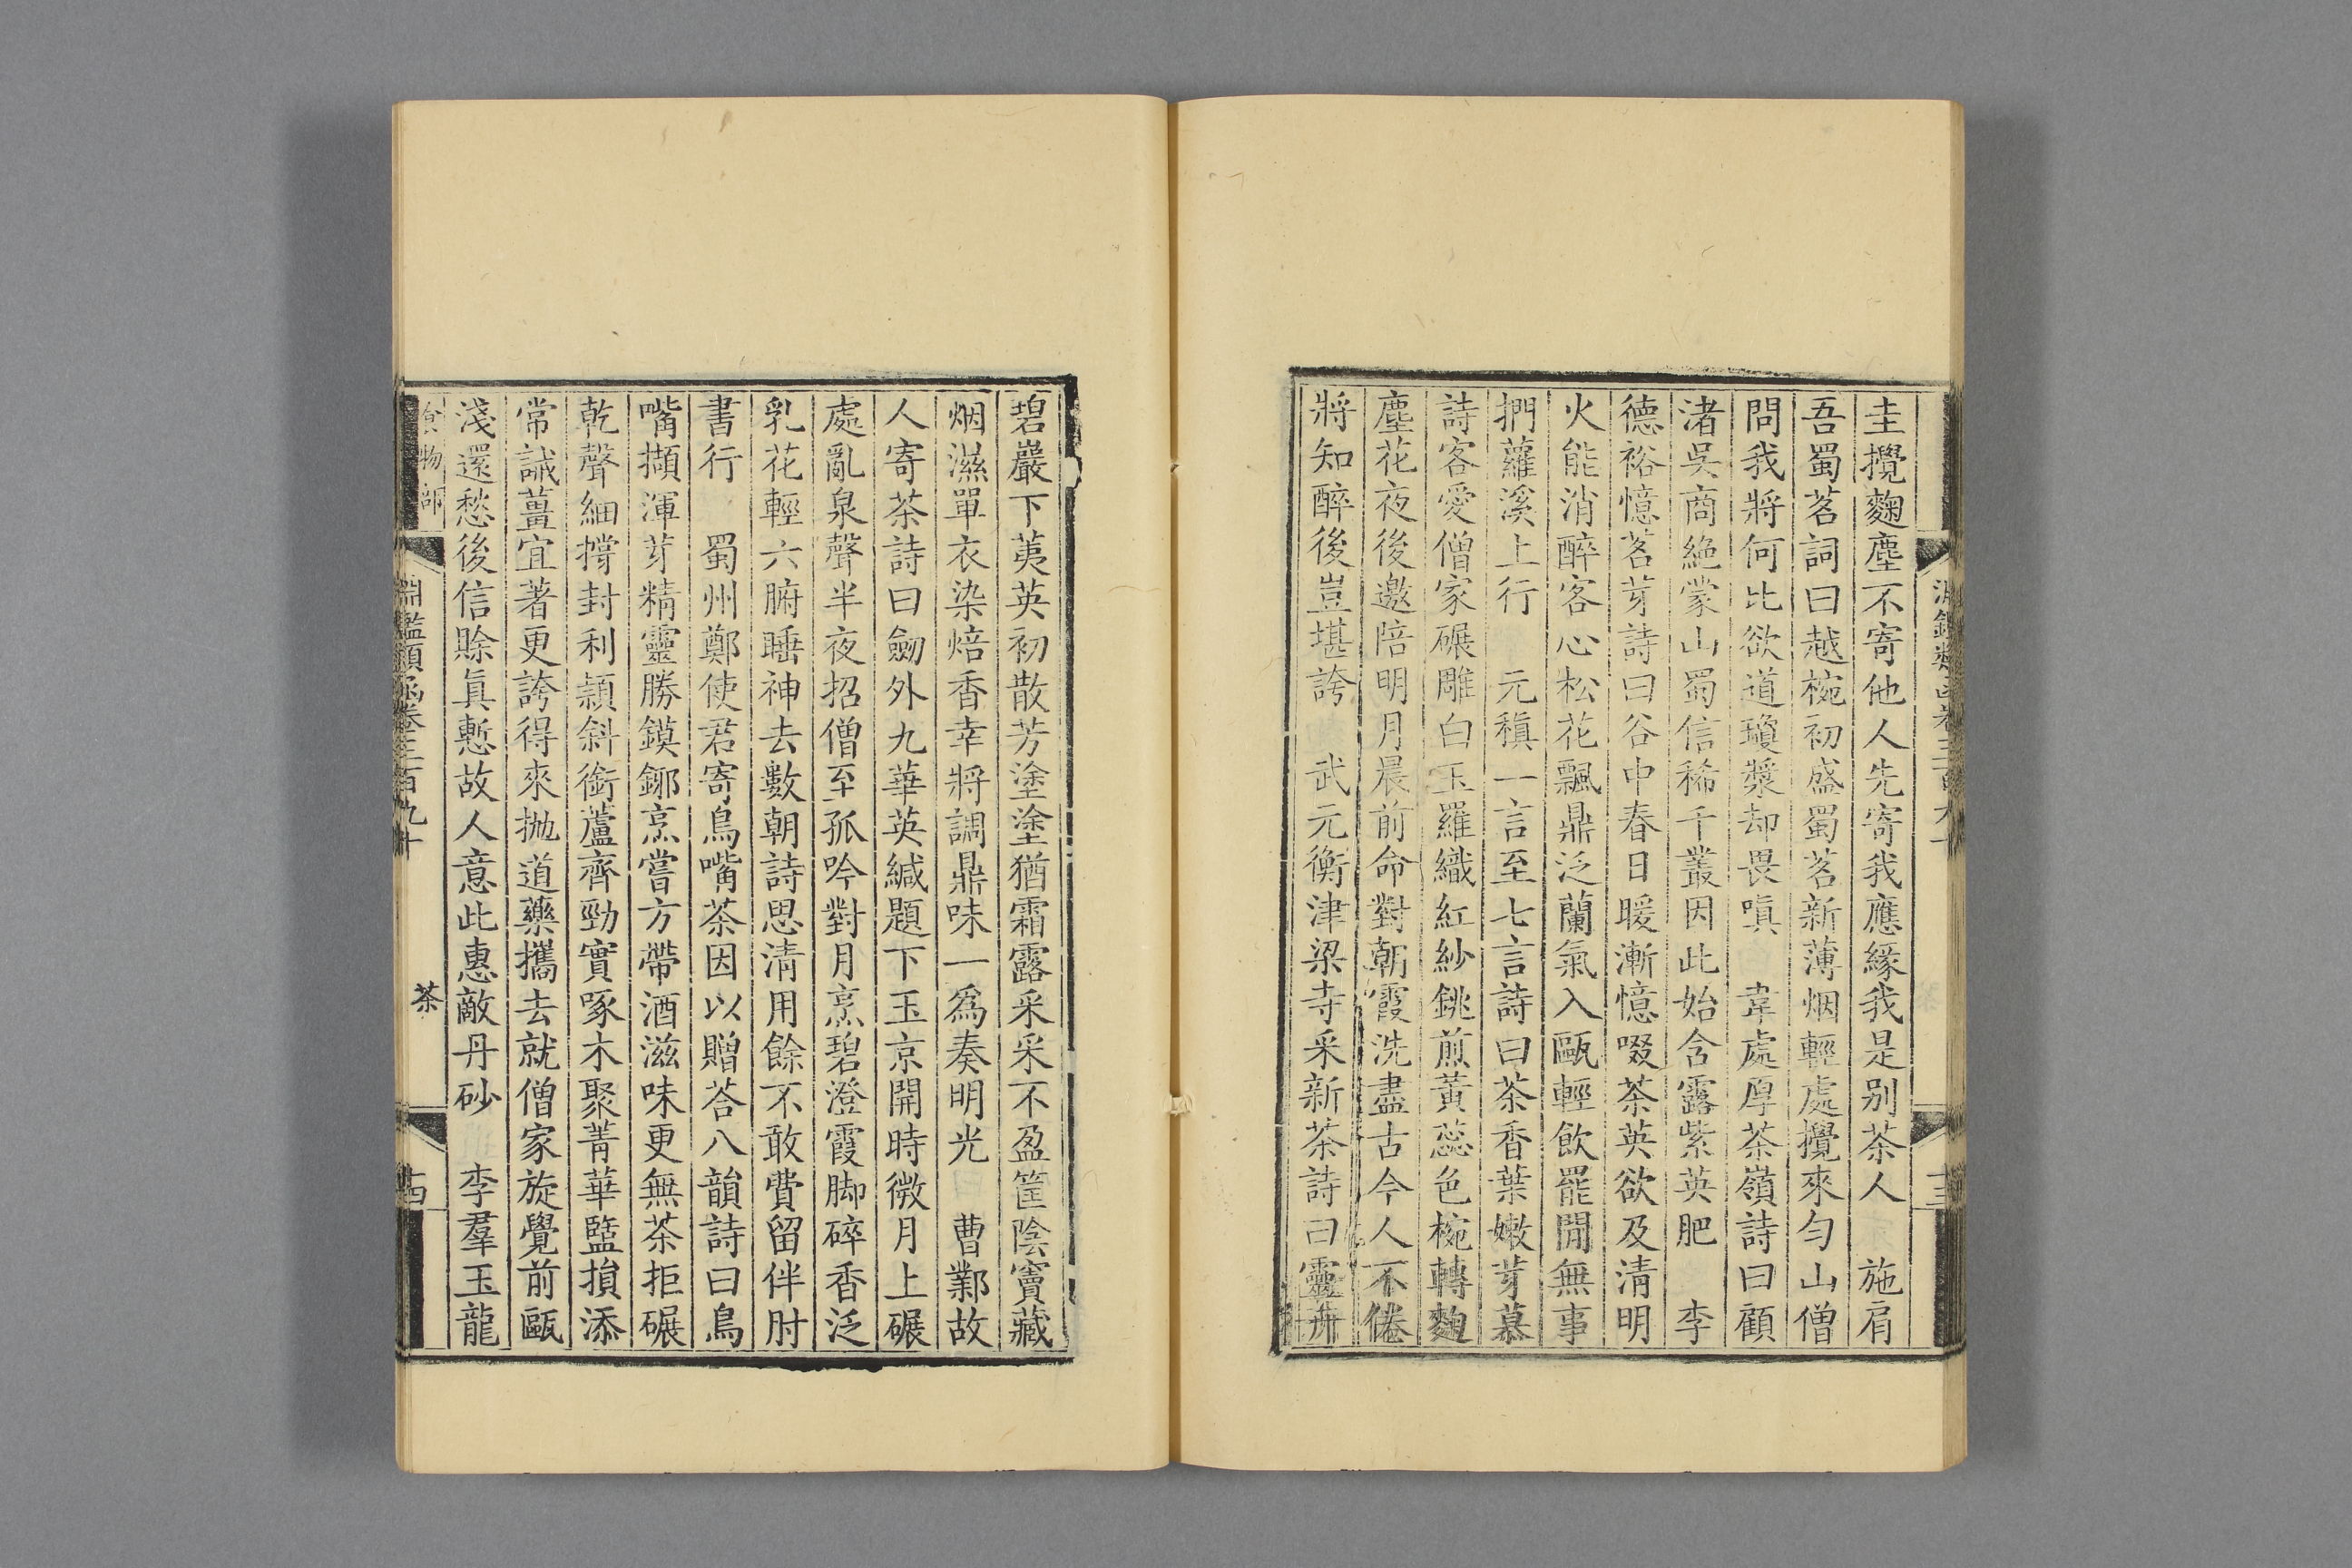 圭攪麴塵不寄他人先寄我應緣我是别茶人　施肩
吾蜀茗詞曰越椀初盛蜀茗新薄烟輕處攪來勻山僧
問我將何比欲道瓊漿却畏嗔　韋處厚茶嶺詩曰顧
渚吳商絶蒙山蜀信稀千叢因此始含露紫英肥　李
德裕憶茗芽詩曰谷中春日暖漸憶啜茶英欲及清明
火能消醉客心松花飄鼎泛蘭氣入甌輕飲罷閒無事
捫蘿溪上行　元稹一言至七言詩曰茶香葉嫩芽慕
詩客愛僧家碾雕白玉羅織紅紗銚煎黃蕊色椀轉麴
塵花夜後邀陪明月晨前命對朝霞洗盡古今人不倦
將知醉後豈堪誇　武元衡津梁寺采新茶詩曰靈卉
碧巖下荑英初散芳塗塗猶霜露采采不盈筐陰竇藏
烟濕單衣染焙香幸將調鼎味一爲奏明光　曹鄴故
人寄茶詩曰劒外九華英緘題下玉京開時微月上碾
處亂泉聲半夜招僧至孤吟對月烹碧澄霞脚碎香泛
乳花輕六腑睡神去數朝詩思清用餘不敢費留伴肘
書行　蜀州鄭使君寄鳥嘴茶因以贈荅八韻詩曰鳥
嘴擷渾芽精靈勝鏌鋣烹嘗方帶酒滋味更無茶拒碾
乾聲細撐封利穎斜銜蘆齊勁實啄木聚菁華鹽損添
常誡薑宜著更誇得來抛道藥攜去就僧家旋覺前甌
淺還愁後信賒眞慙故人意此惠敵丹砂　李羣玉龍
食物部 淵鑑類函卷三百九十 茶 十四